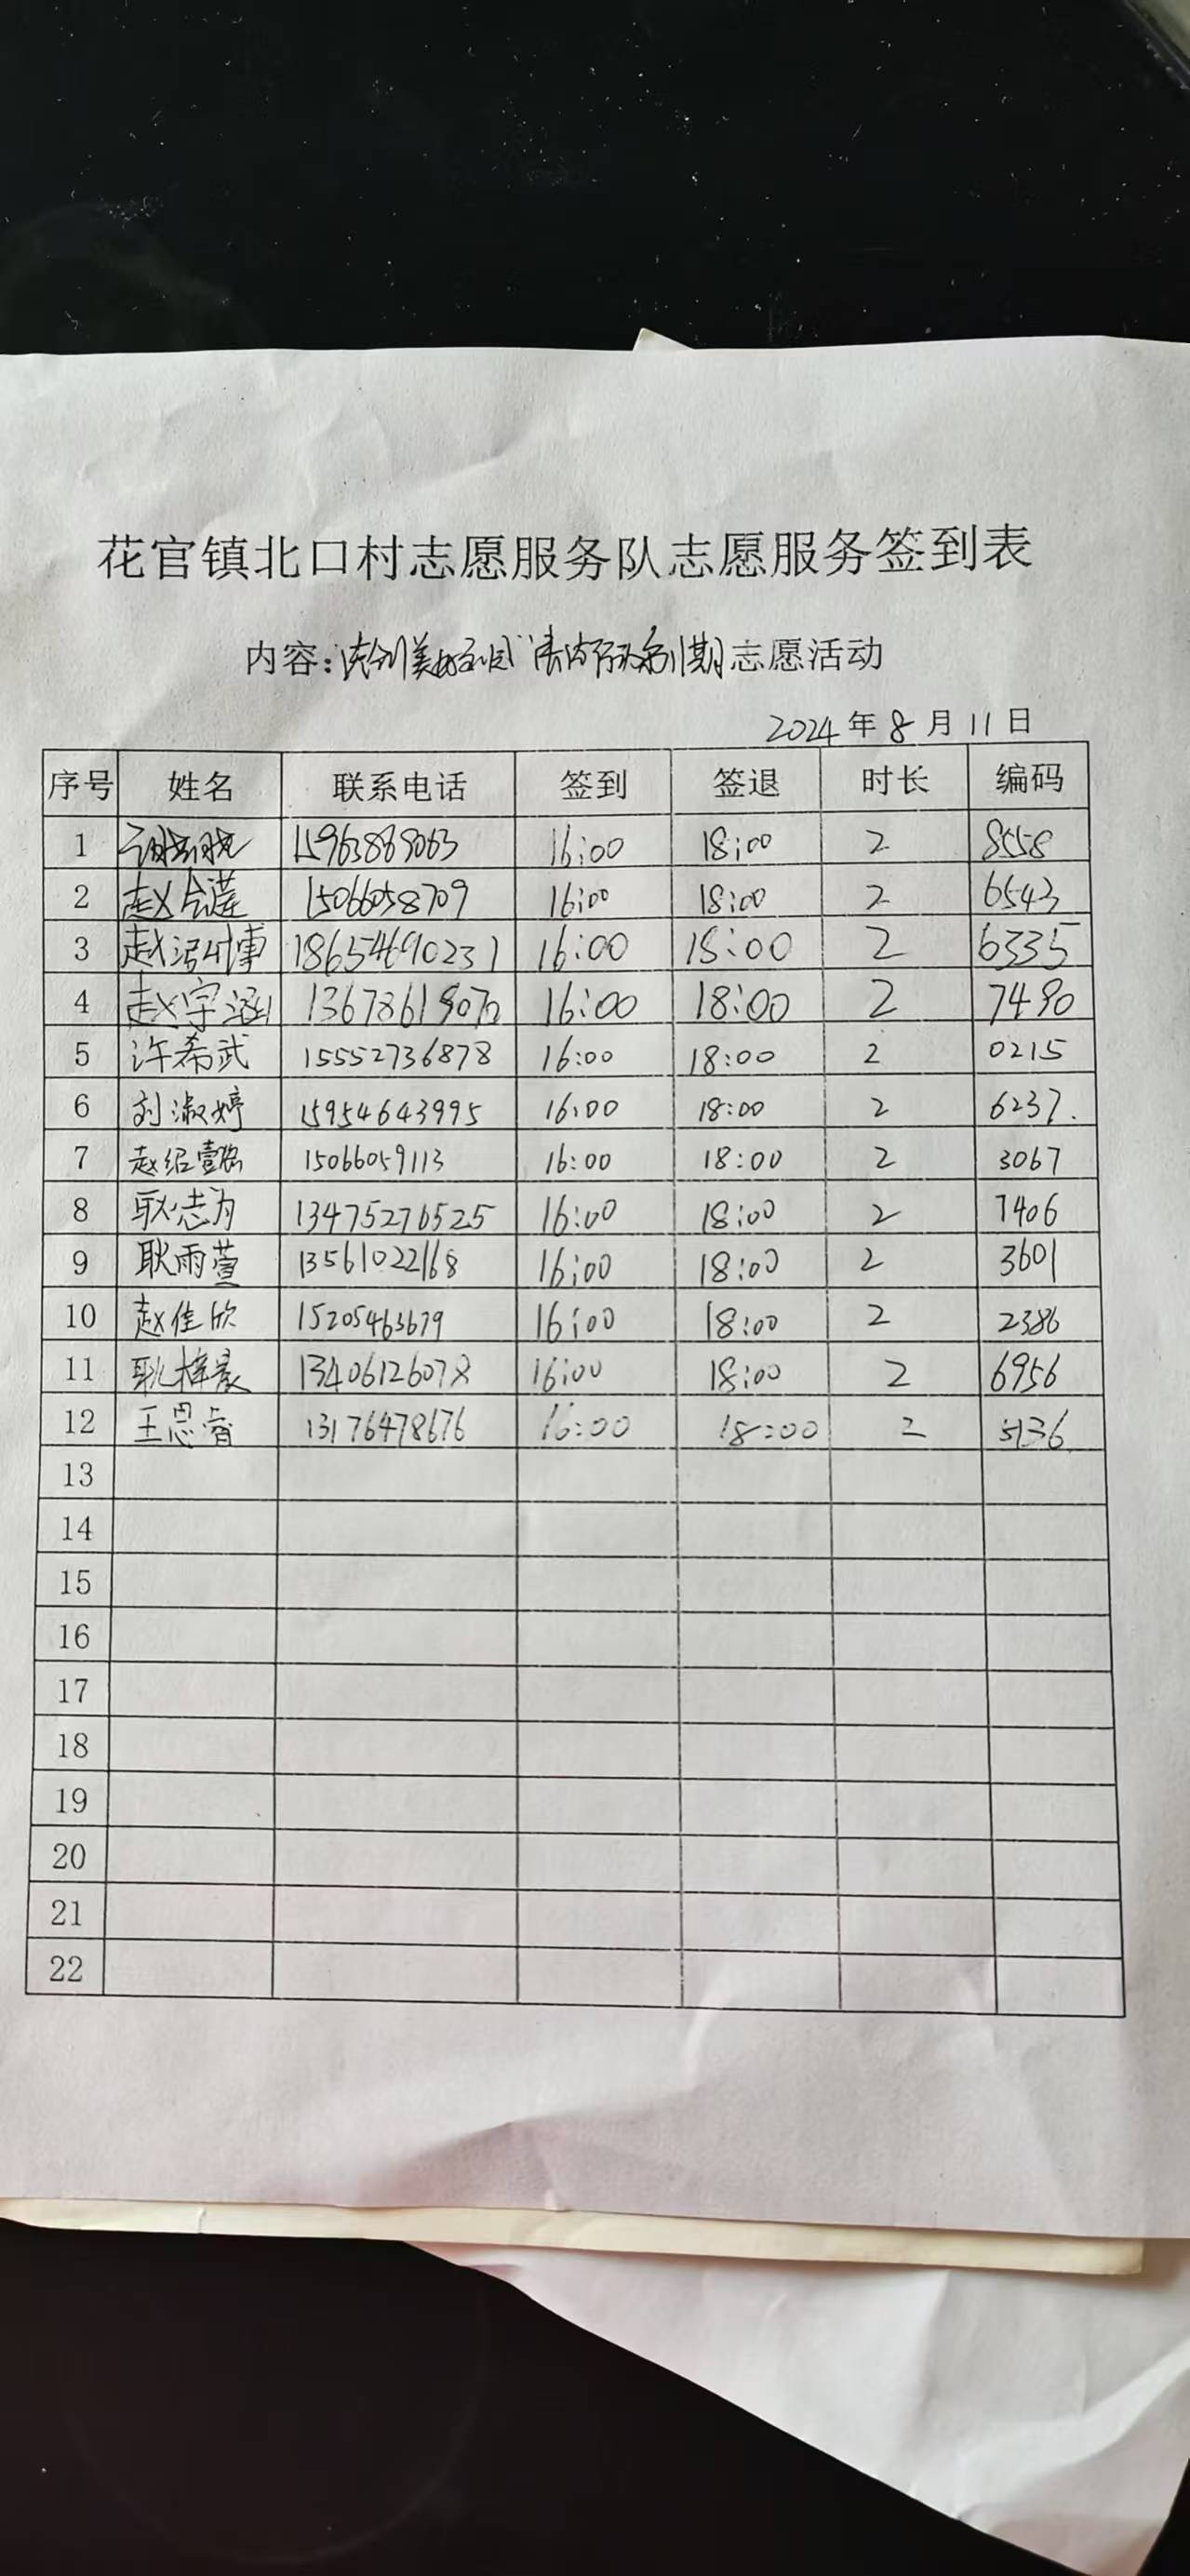 花官镇北口村志愿服务队志愿服务签到表
内容: 志愿活动
2024年8月11日
序号 姓名 联系电话 签到 签退 时长 编码
1 15963889063 16:00 18:00 2 8558
2 赵合莲 15066058709 16:00 18:00 2 6543
3 赵泓博 18654690231 16:00 18:00 2 6335
4 赵宇涵 16:00 18:00 2 7490
5 许希武 15552736878 16:00 18:00 2 0215
6 刘淑婷 15954643995 16:00 18:00 2 6237.
7 15066059113 16:00 18:00 2 3067
8 耿志为 13475276525 16:00 18:00 2 7406
9 耿雨萱 13561022168 16:00 18:00 2 3601
10 赵佳欣 15205463679 16:00 18:00 2 2386
11 耿梓晨 13406126078 16:00 18:00 2 6956
12 王思睿 13176478676 16:00 18:00 2 5136
13
14
15
16
17
18
19
20
21
22